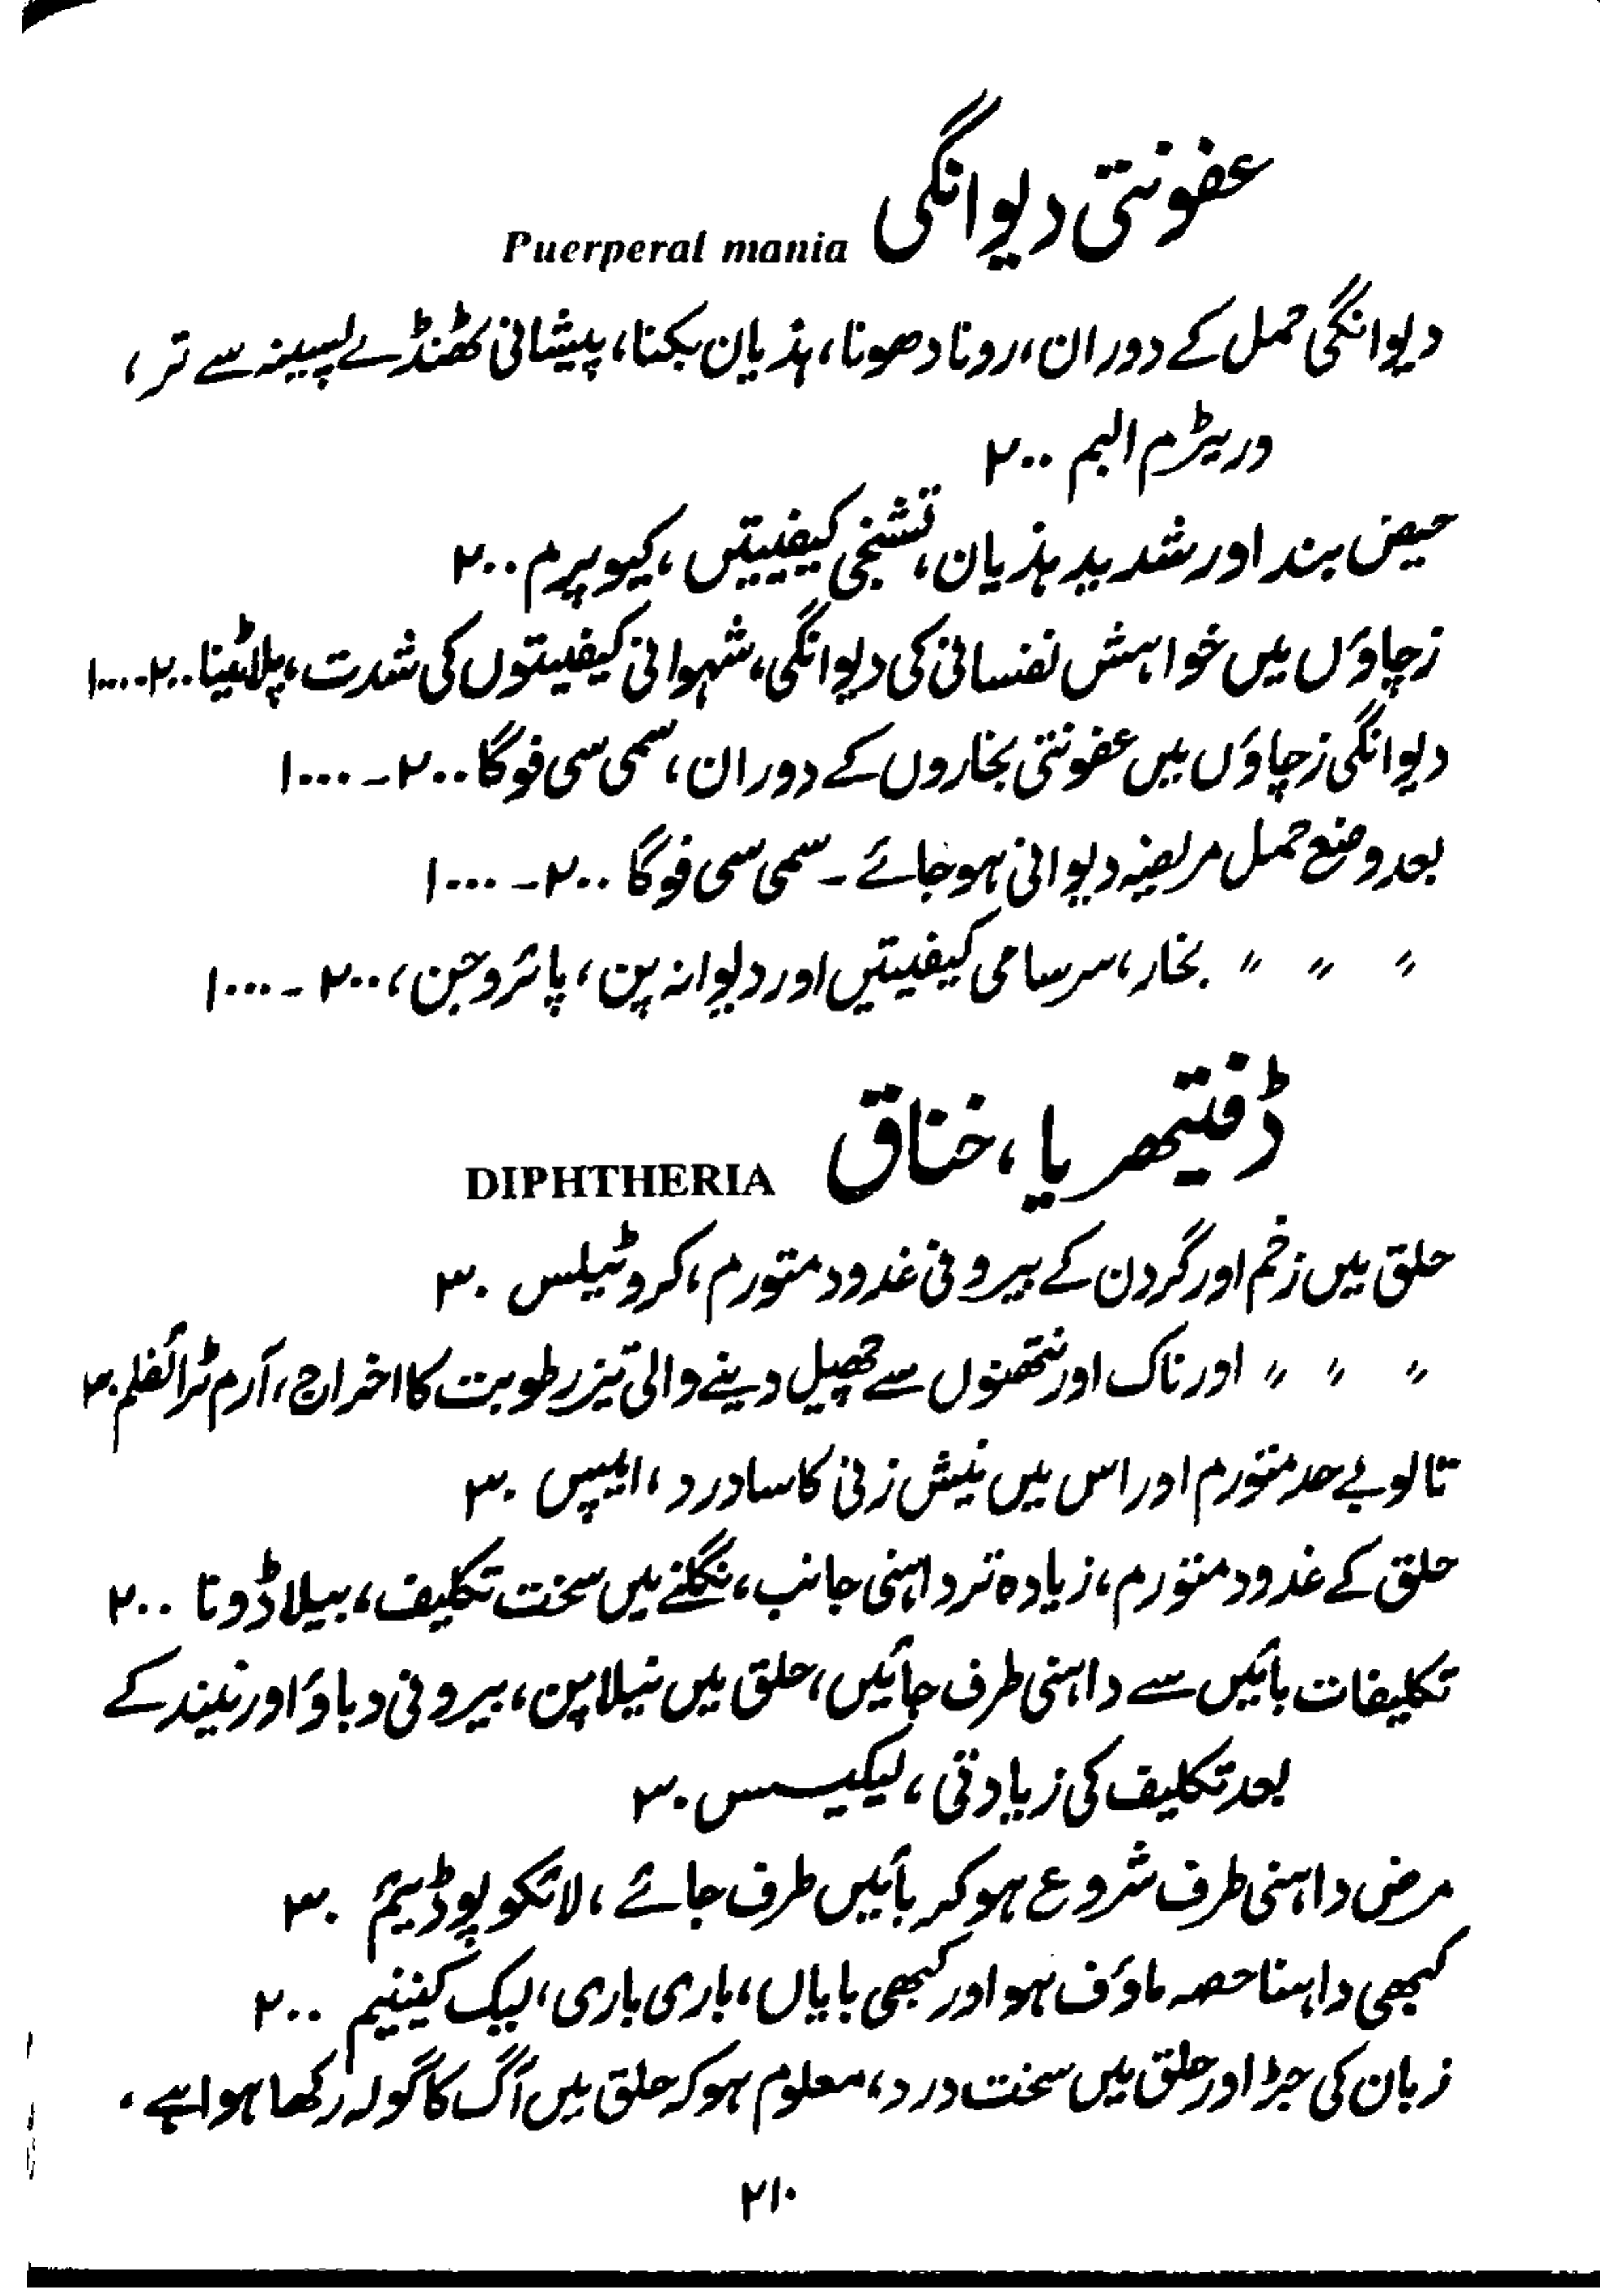 عفونتی دیوانگی Puerperal mania
دیوانگی حمل کے دوران، رونا دھونا، ہذیان بکنا، پیشانی ٹھنڈے پسینہ سے تر،
وریٹرم البم ۲۰۰
حیض بند اور شدید ہذیان، تشنجی کیفیتیں، کیوپرم ۲۰۰
زچاؤں میں خواہش نفسانی کی دیوانگی، شہوانی کیفیتوں کی شدت، پلاٹینا ۲۰۰۔۱۰۰۰
دیوانگی زچاؤں میں عفونتی بخاروں کے دوران، سمی سی فوگا ۲۰۰۔۱۰۰۰
بعد وضع حمل مریضہ دیوانی ہو جائے ۔ سمی سی فوگا ۲۰۰۔۱۰۰۰
〃 〃 〃 بخار، سرسامی کیفیتیں اور دیوانہ پن، پائروجن، ۲۰۰۔۱۰۰۰
ڈفتیھریا، خناق DIPHTHERIA
حلق میں زخم اور گردن کے بیرونی غدود متورم، کروٹیلس ۳۰
〃 〃 〃 اور ناک اور نتھنوں سے چھیل دینے والی تیز رطوبت کا اخراج، آرم ٹرائفلم ۳۰
تالو بے حد متورم اور اس میں نیش زنی کا سا درد، ایپس ۳۰
حلق کے غدود متورم، زیادہ تر داہنی جانب، نگلنے میں سخت تکلیف، بیلاڈونا ۲۰۰
تکلیفات بائیں سے داہنی طرف جائیں، حلق میں نیلا پن، بیرونی دباؤ اور نیند کے
بعد تکلیف کی زیادتی، لیکیسس ۳۰
مرض داہنی طرف شروع ہو کر بائیں طرف جائے، لائکوپوڈیئم ۳۰
کبھی داہنا حصہ ماؤف ہو اور کبھی بایاں، باری باری، لیک کینینیم ۲۰۰
زبان کی جڑ اور حلق میں سخت درد، معلوم ہو کہ حلق میں آگ کا گولہ رکھا ہوا ہے،
۲۱۰